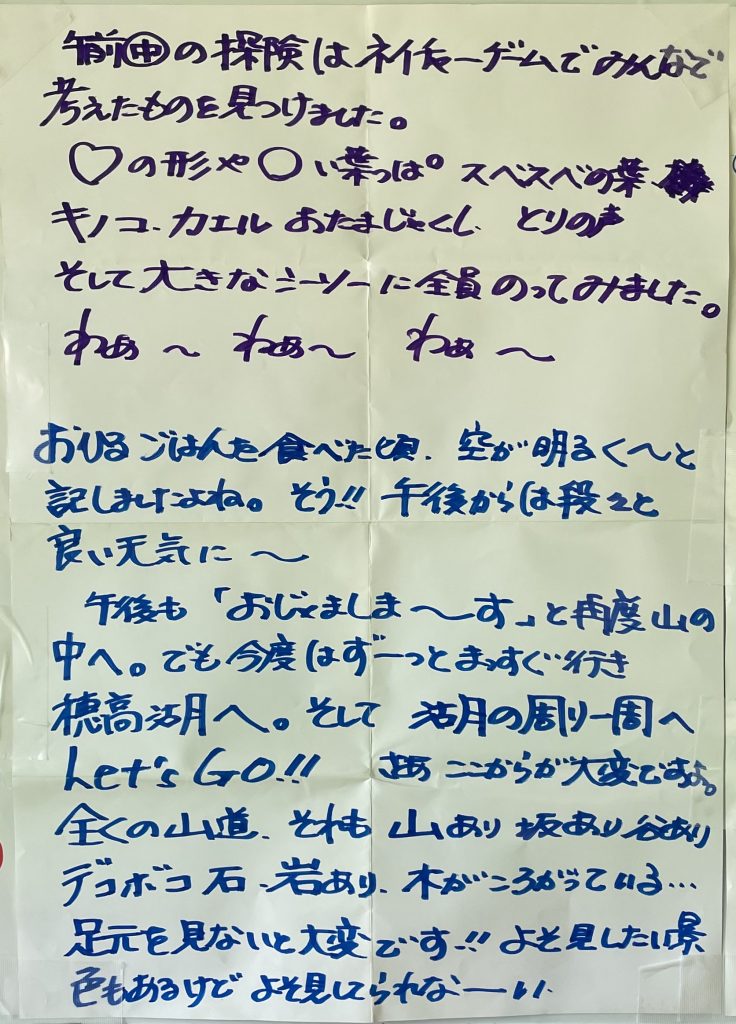 午前㊥の探険はネイチャーゲームでみんなで
考えたものを見つけました。
♡の形や〇い葉っぱ。スベスベの葉
キノコ、カエル おたまじゃくし、とりの声
そして大きなシーソーに全員のってみました。
わぁ〜 わぁ〜 わぁ〜
おひるごはんを食べた頃、空が明るく〜と
記しましたよね。そう!! 午後からは段々と
良い天気に〜
午後も「おじゃましま〜す」と再度山の
中へ。でも今度はず―っとまっすぐ行き
穂高湖へ。そして 湖の周り一周へ
Let's GO!! さあ ここからが大変ですよ。
全くの山道、それも 山あり 坂あり 谷あり
デコボコ石、岩あり、木がころがっている…
足元を見ないと大変です!! よそ見したい景
色もあるけど よそ見してられな―い、